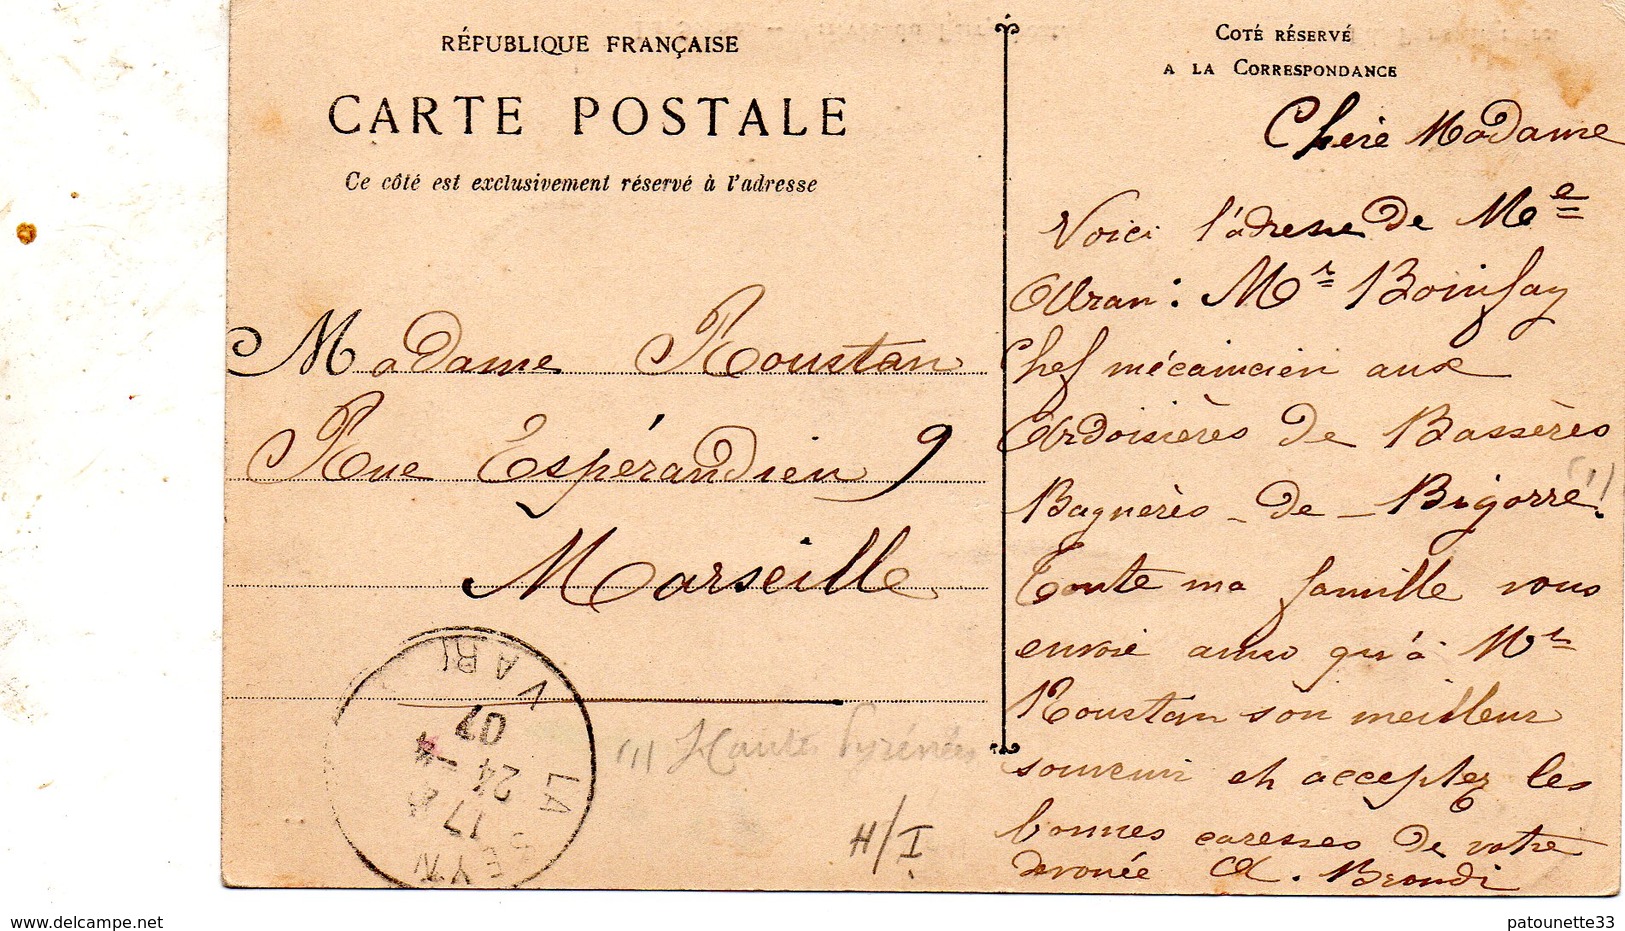 RÉPUBLIQUE FRANÇAISE
CARTE POSTALE
Ce côté est exclusivement réservé à l'adresse
Madame Roustan
Rue Espérandieu 9
Marseille
LA SEYN
VAR
17
24 - 4
07
(1) Hautes Pyrenées
H/I
COTÉ RÉSERVÉ
A LA CORRESPONDANCE
Chère Madame
Voici l'adresse de Me
Aran : Mr Bonifay
Chef mécanicien aux
Ardoisières de Bassères
Bagnères - de - Bigorre (1)
Toute ma famille vous
envoie ainsi qu'à Mr
Roustan son meilleur
souvenir et acceptez les
bonnes caresses de votre
devouée A. Brondi
www.delcampe.net
patounette33